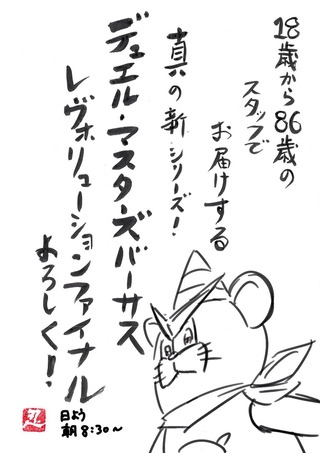 18歳から86歳の
スタッフで
お届けする
真の新シリーズ!
デュエル・マスターズバーサス
レヴォリューションファイナル
よろしく!
日よう
朝8:30~